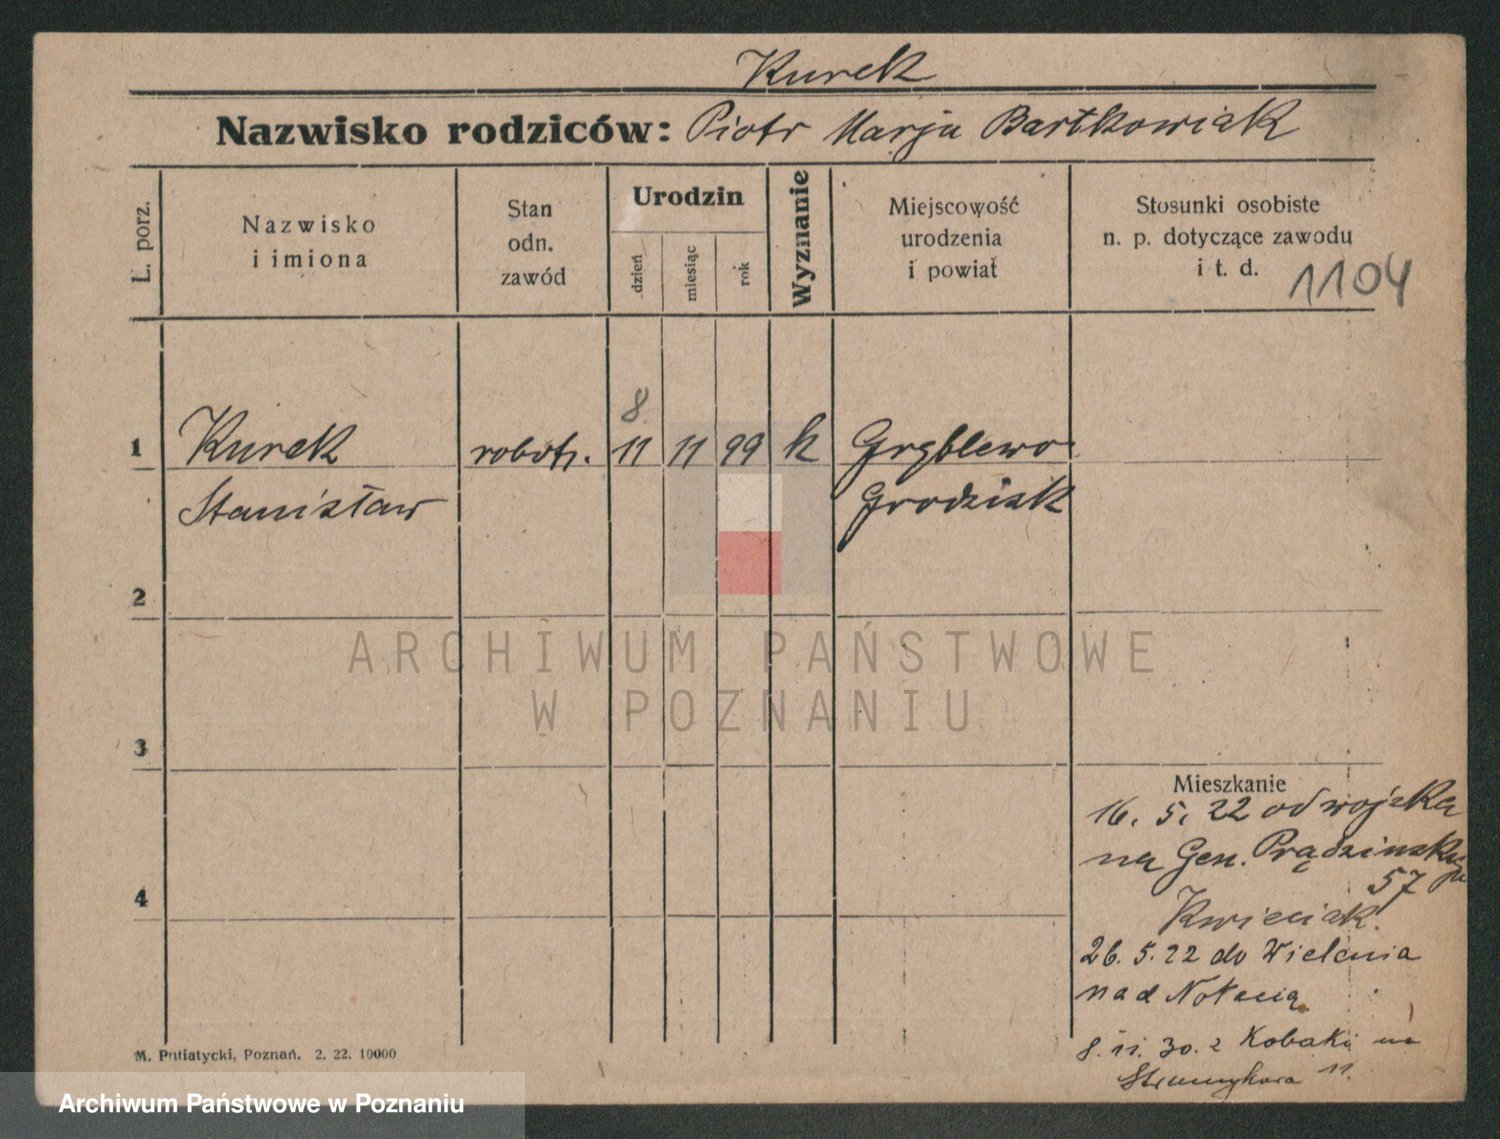 Kurek
Nazwisko rodziców: Piotr Marja Bartkowiak
L. porz.
Nazwisko
i imiona
Stan
odn.
zawód
Urodzin
dzień
miesiąc
rok
Wyznanie
Miejscowość
urodzenia
i powiat
Stosunki osobiste
n. p. dotyczące zawodu
i t. d.
1104
8
1 Kurek robotn. 11 11 99 k Gryblewo
Stanisław Grodzisk
2
ARCHIWUM PAŃSTWOWE
W POZNANIU
3
Mieszkanie
16. 5. 22 od wojska
na Gen. Prądzinskiego
57
4
Kwieciak.
26. 5. 22 do Wielenia
nad Notecią
8. 11. 30. z Kobaki na
11.
M. Putiatycki, Poznań. 2. 22. 10000
Archiwum Państwowe w Poznaniu